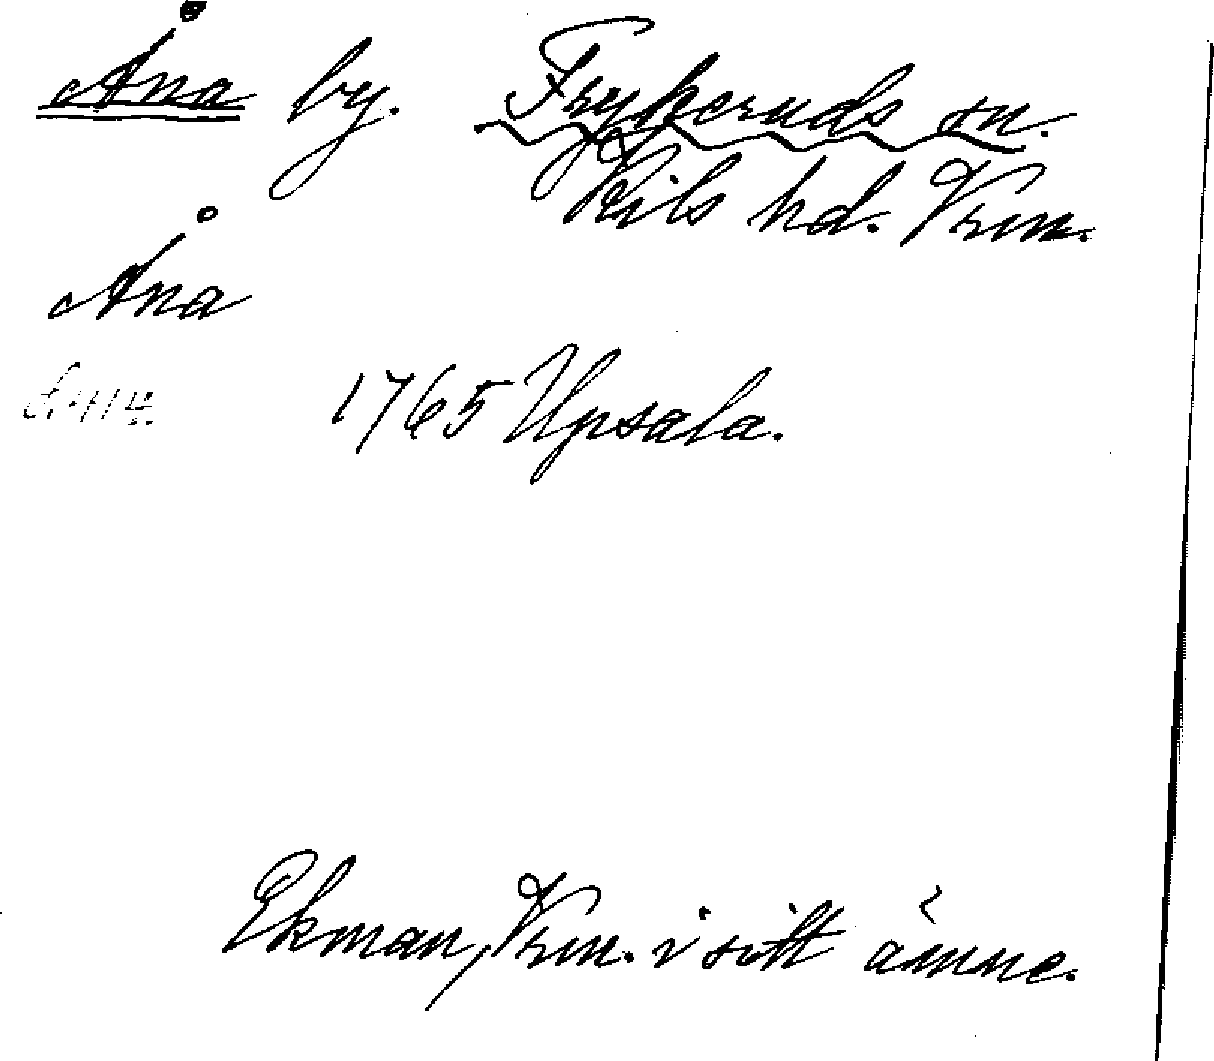 Åna by. Frykeruds sn.
Kils hd. Vrm.
Åna
1765 Upsala.
Ekman, Vrm. i sitt ämne.